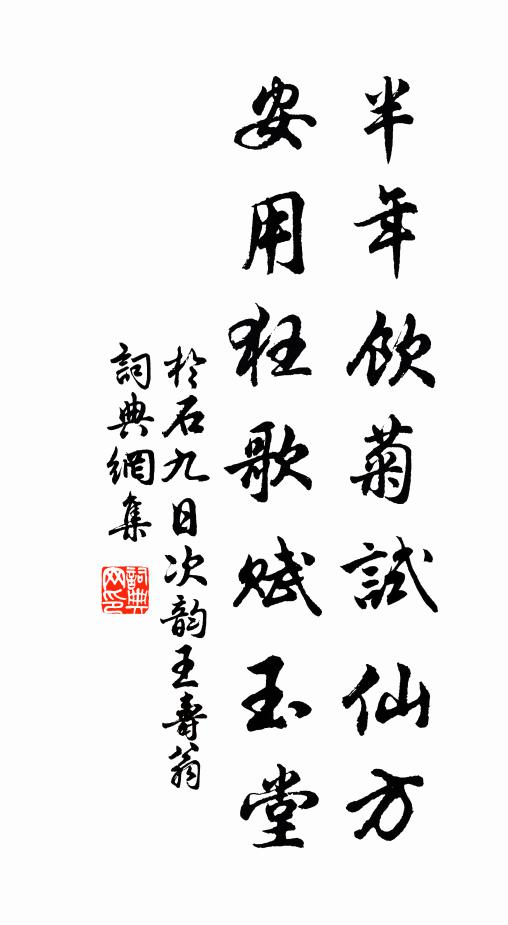 半年飲菊試仙方
安用狂歌賦玉堂
於石九日次韵王壽翁
詞典網集
詞典
网印